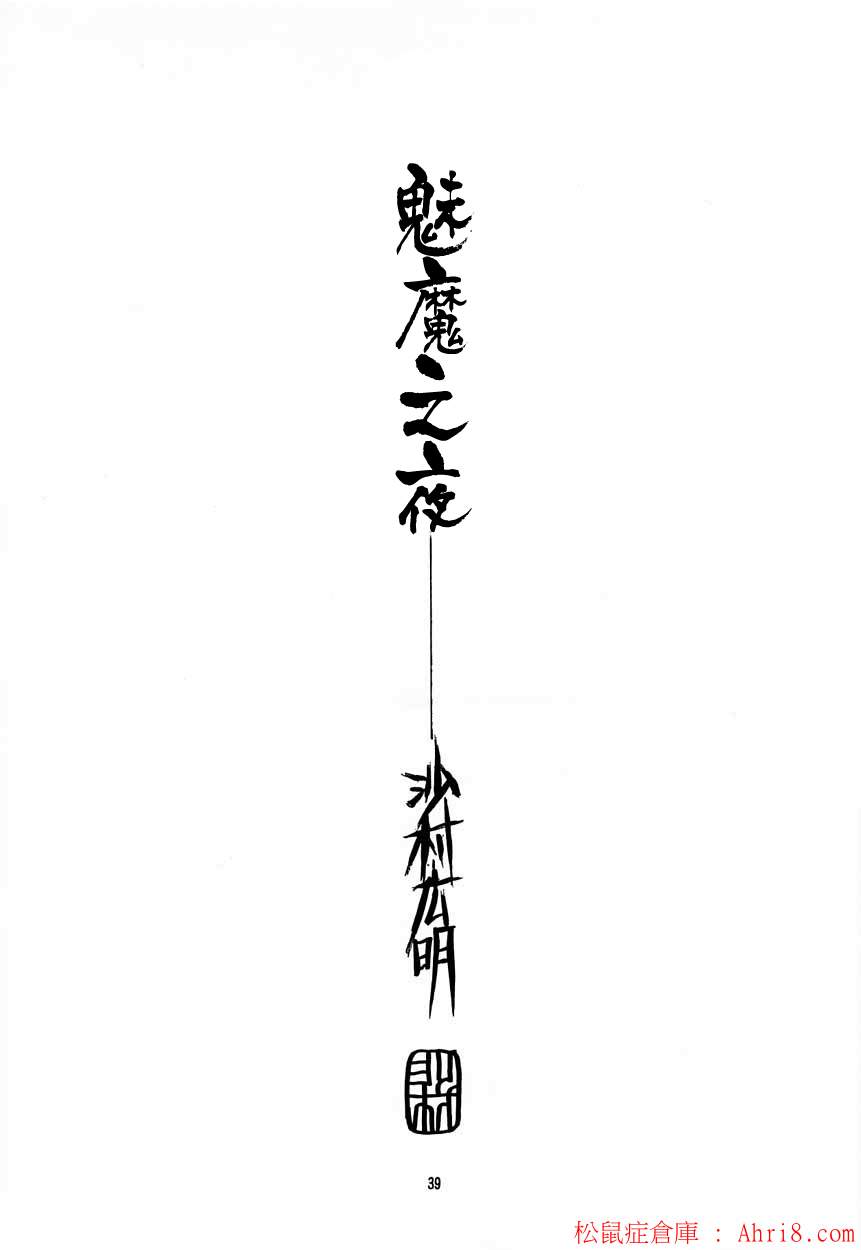 魅魔之夜
沙村広明
39
松鼠症倉庫 : Ahri8.com